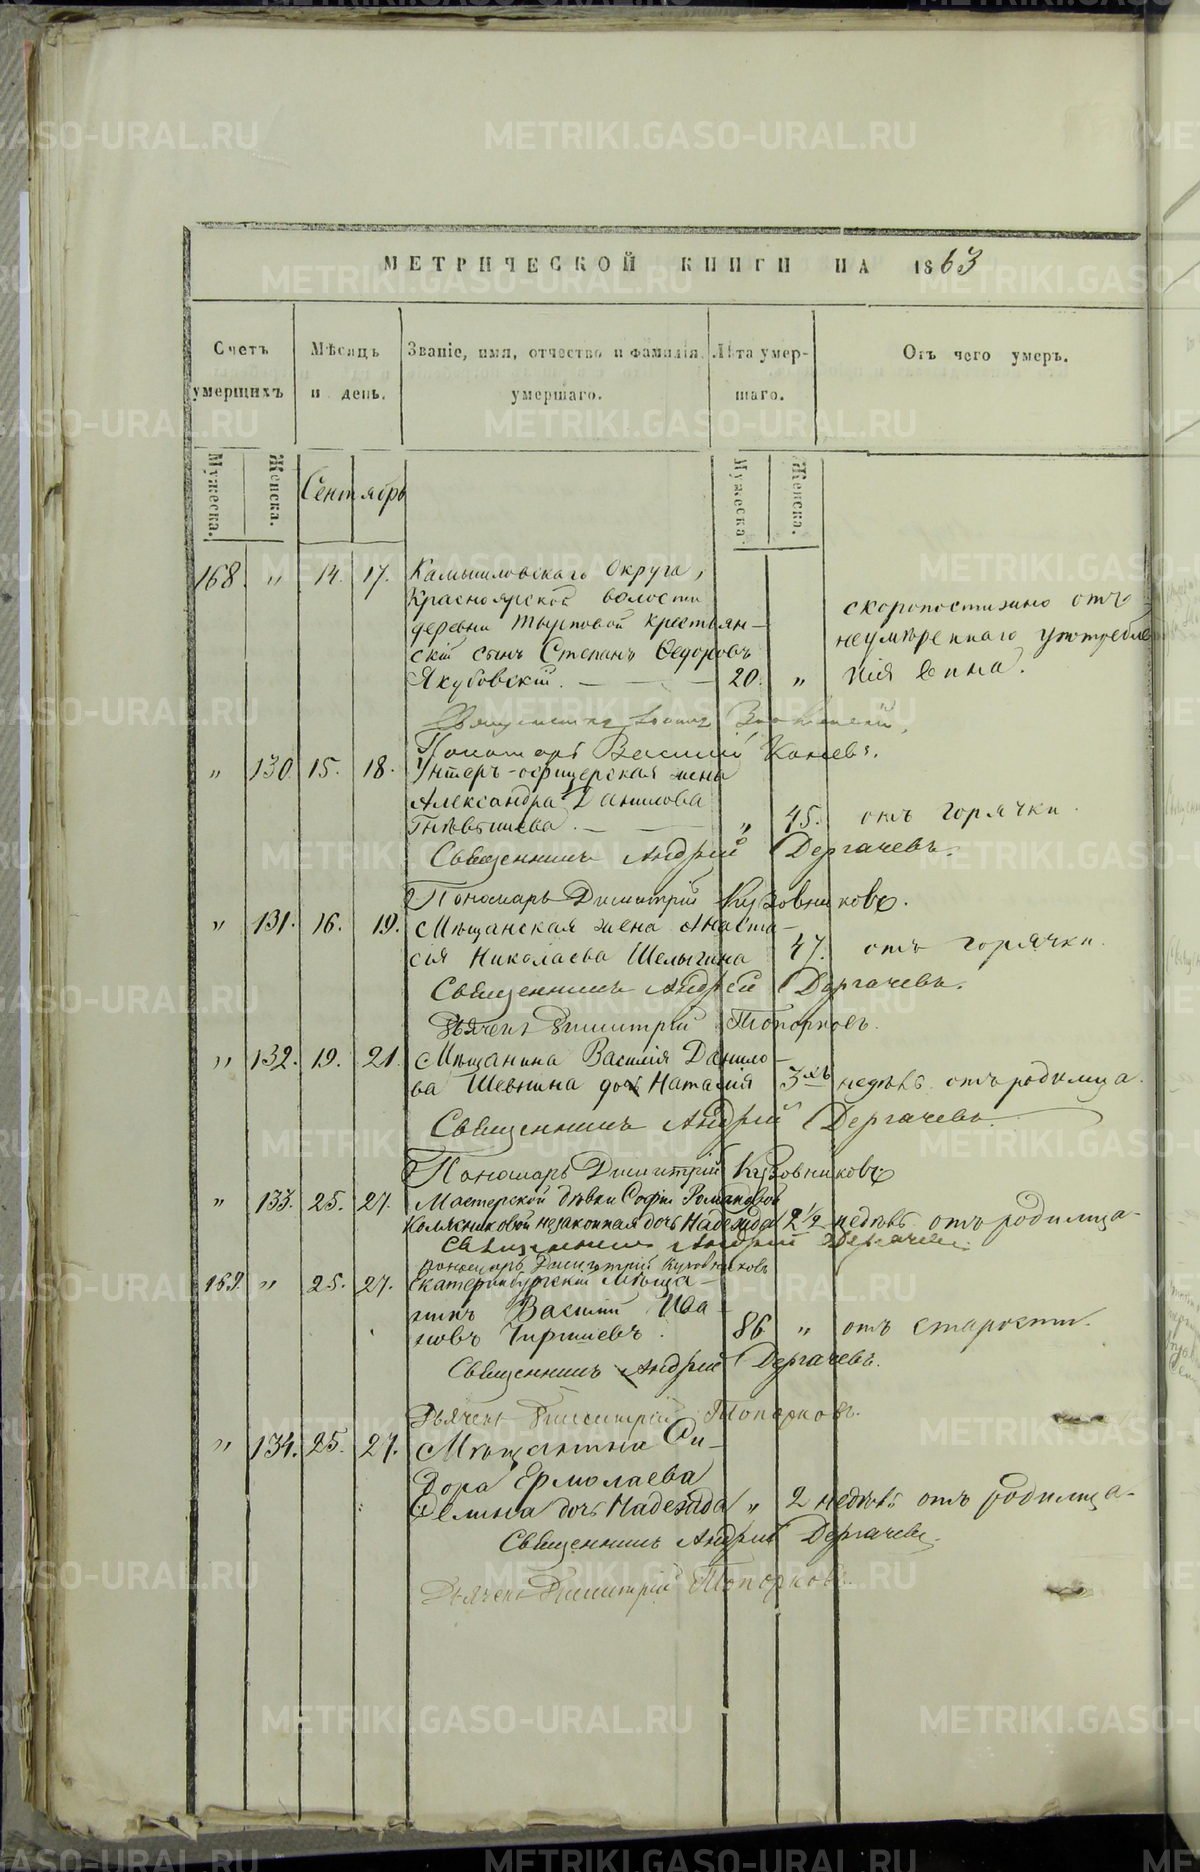 МЕТРИЧЕСКОЙ КНИГИ НА 1863
Счетъ умерщихъ
Мѣсяцъ и день.
Званіе, имя, отчество и фамилія умершаго.
Лѣта умершаго.
Отъ чего умеръ.
Мужеска.
Женска.
Сентябрь
Мужеска.
Женска.
168. " 14. 17. Камышловскаго Округа,
Красноярской волости
деревни крестьян-
скій сынъ Степанъ Ѳедоровъ
Якубовскій. 20. "
скоропостижно отъ
неумѣреннаго употребле
нія вина.
Священникъ
Пономарь Василій Каневъ.
" 130. 15. 18. Унтеръ-офицерская жена
Александра Данилова
" 45. отъ горячки
Священникъ Андрей Дергачевъ.
Пономарь Димитрій Кузовниковъ.
" 131. 16. 19. Мѣщанская жена Анаста-
сія Николаева Шелыгина 47. отъ горячки.
Священникъ Андрей Дергачевъ.
Дьячекъ Димитрій Топорковъ.
" 132. 19. 21. Мѣщанина Василія Данило-
ва Шевнина дочь Наталія 3хъ недѣль отъ родимца.
Священникъ Андрей Дергачевъ.
Пономарь Димитрій Кузовниковъ
" 133. 25. 27. Мастерской дѣвки Софіи Романовой
Колясниковой незаконная дочь Надежда 2 1/2 недѣль отъ родимца.
Священникъ Андрей Дергачевъ.
Пономарь Димитрій Кузовниковъ
169. " 25. 27. Екатеринбургскій мѣща-
нинъ Василій Ива-
новъ 86 " отъ старости.
Священникъ Андрей Дергачевъ.
Дьячекъ Димитрій Топорковъ.
" 134. 25. 27. Мѣщанина Си-
дора Ермолаева
дочь Надежда " 2 недѣль отъ родимца.
Священникъ Андрей Дергачевъ.
Дьячекъ Димитрій Топорковъ.
METRIKI.GASO-URAL.RU